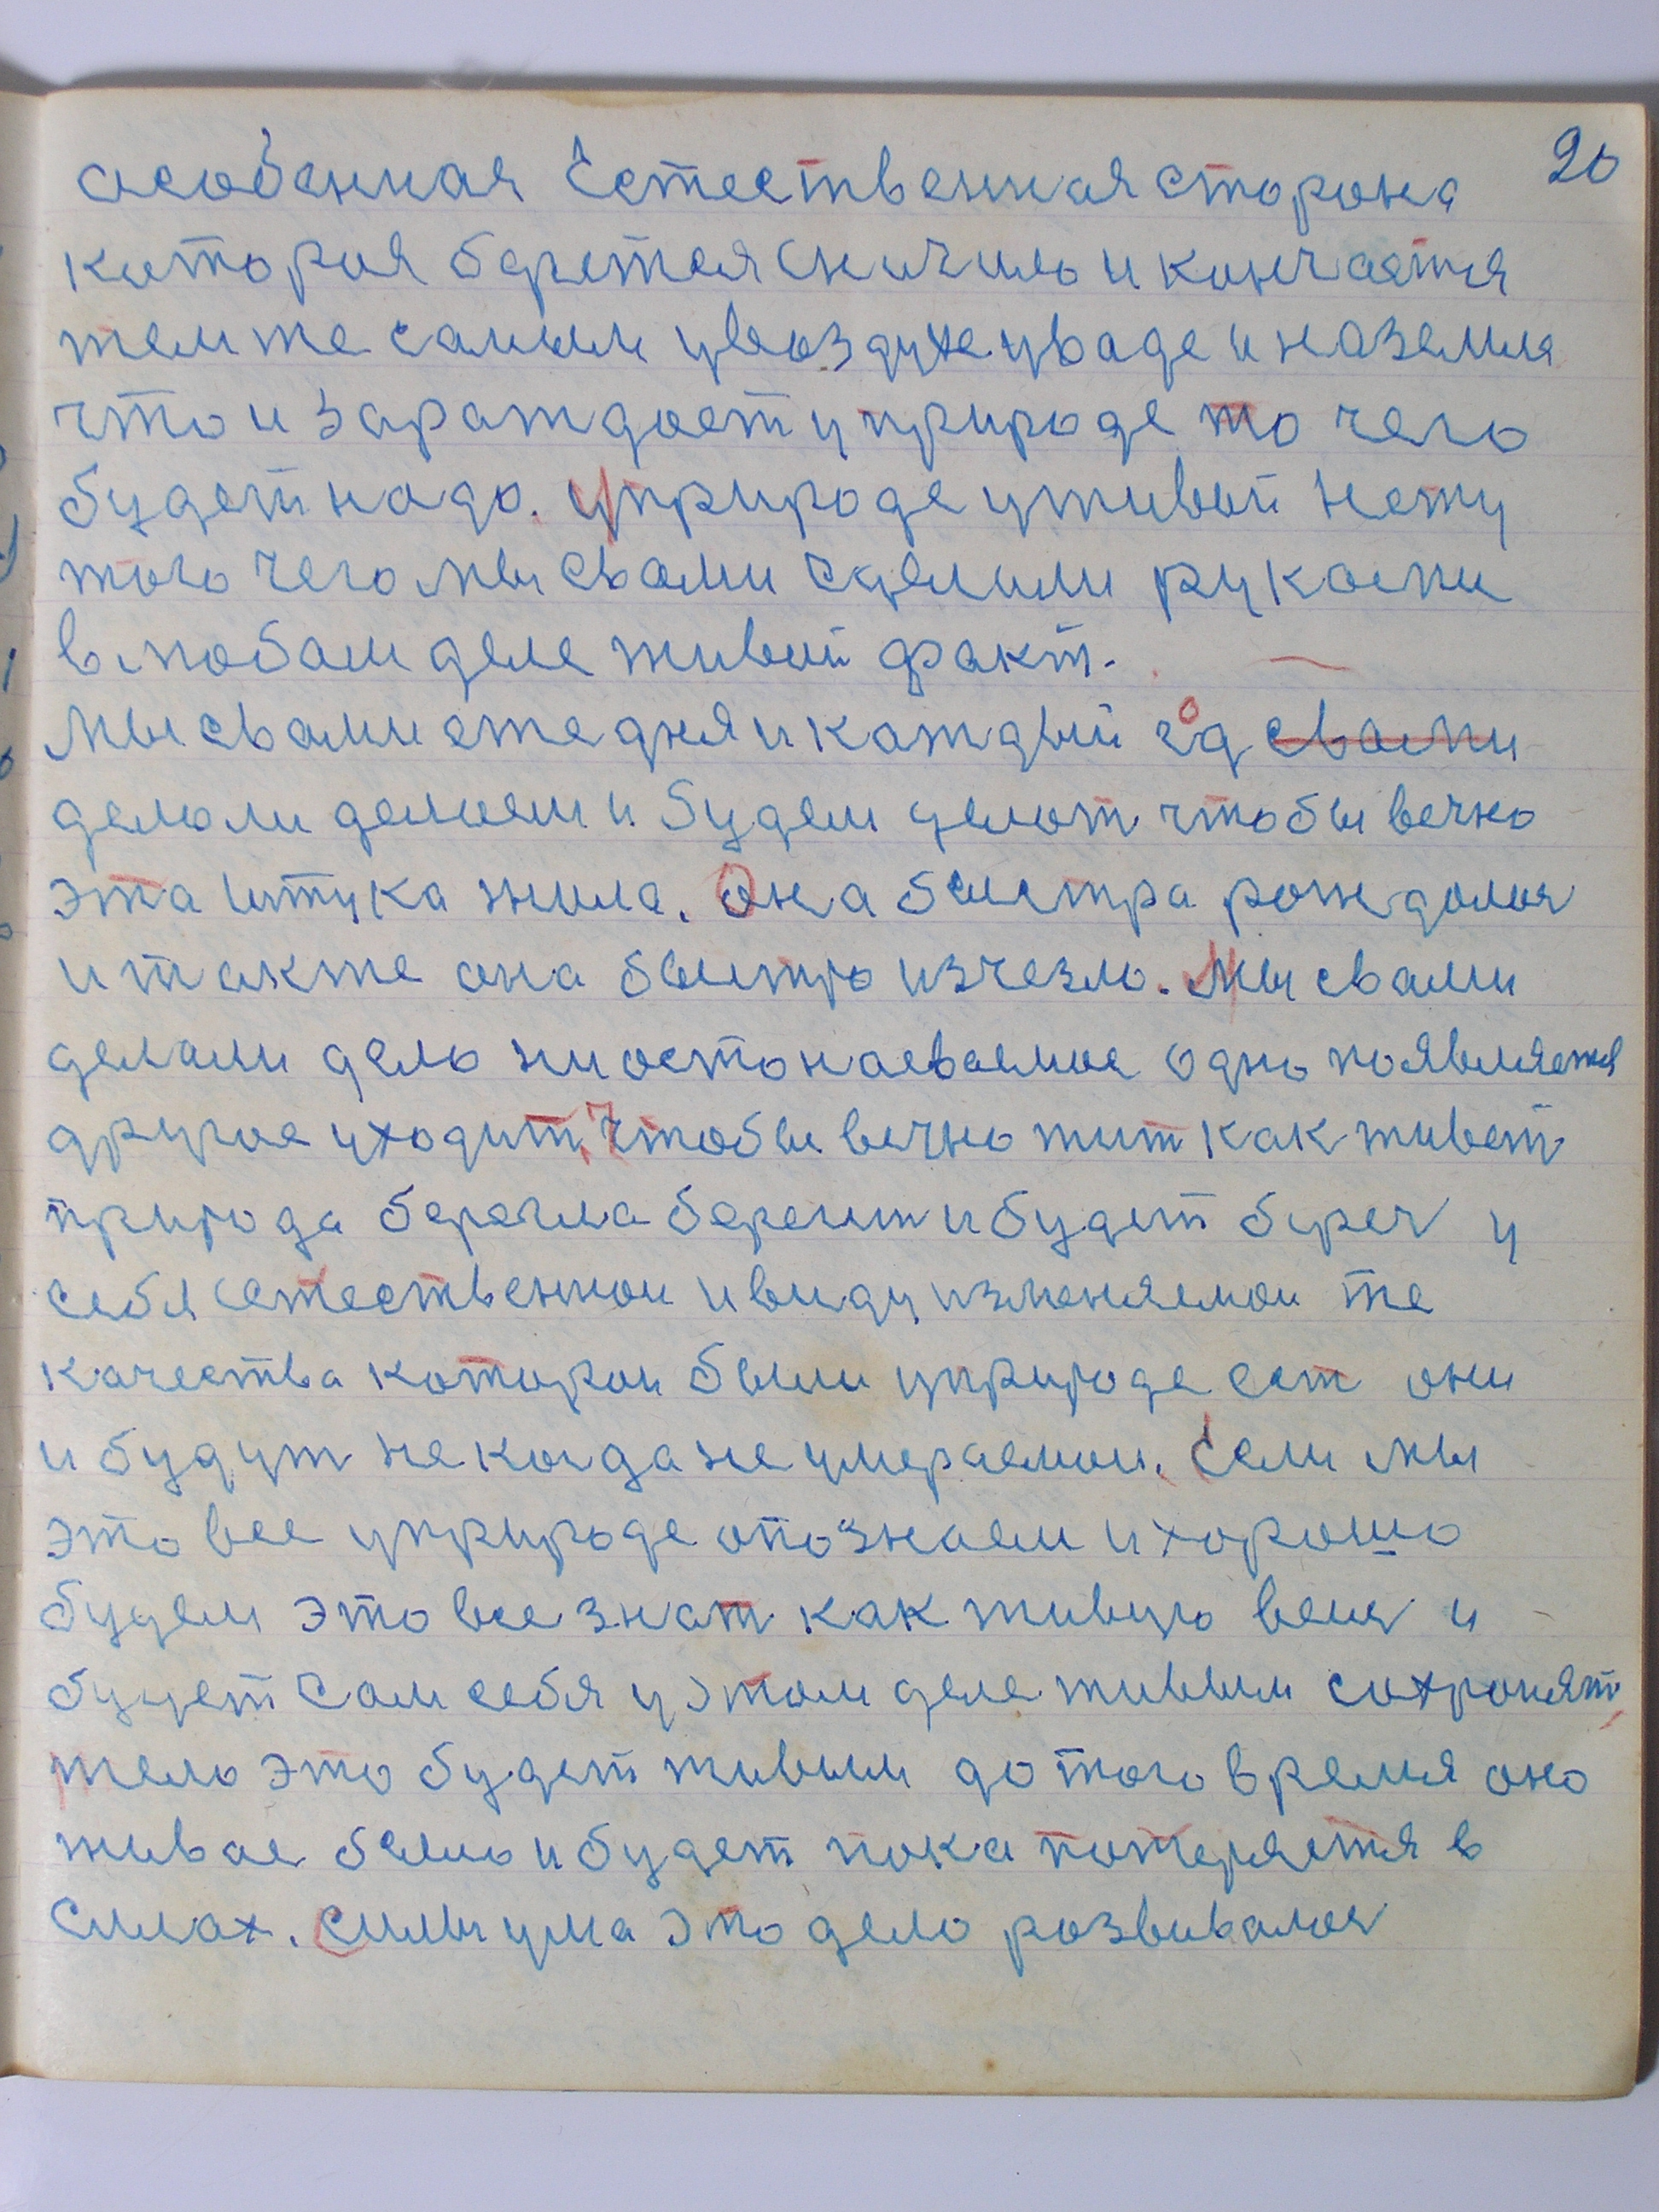 20
асобенная Естественная сторона
которая бдретея сничило и кончаетця
темже самым увоздухе уваде и наземля
что и зараждает уприроде то чего
будет надо. уприроде уживой нету
того чего мы свами сделили руками
влюбам деле живый факт.
Мы свами ежедня и каждый год свами
делоли делаем и будем делат чтобы вечно
эта штука жила. Она быстра рождалоя
и также она быстро изчезло. Мы свами
делали дело ниостонаеваемое одно появляетця
другое уходит, Чтобы вечно жит как живет
природа берегла берегит и будет береч у
себя Естественнои ивиду изменяемои те
качества которои были уприроде ест они
и будут некогда неумераемои. Если мы
это все уприроде опознаем и хорошо
будем это все знат как живую вещ и
будет сам себя у этом деле живым сохронят,
тело это будет живым до того время оно
живае было и будет пока потеряетця в
силах. силы ума это дело розвивалоя